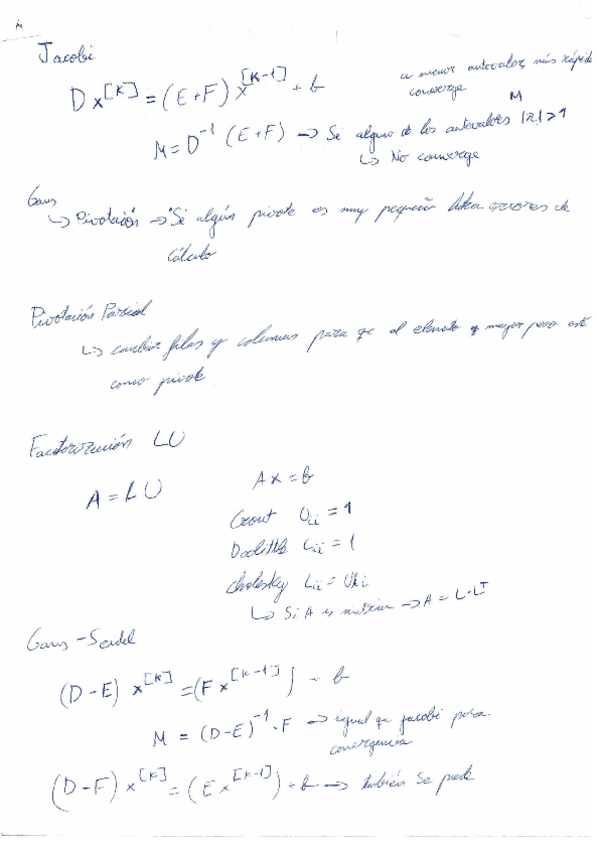 Jacobi
a menor autovalor, más rápido
converge
D x^[K] = (E+F) x^[K-1] + b
M
M = D^-1 (E+F) → Si alguno de los autovalores |λ| > 1
↳ No converge
Gaus
↳ Pivotación → Si algún pivote es muy pequeño errores de
cálculo
Pivotación Parcial
↳ cambiar filas y columnas para que el elemento q mayor peso esté
como pivote
Factorización LU
A = LU
Ax = b
Crout Uii = 1
Doolittle Lii = 1
Cholesky Lii = Uii
↳ Si A es → A = L·L^T
Gaus-Seidel
(D-E) x^[K] = (F x^[K-1]) + b
M = (D-E)^-1 · F → igual q jacobi para
convergencia
(D-F) x^[K] = (E x^[K-1]) + b → también se puede